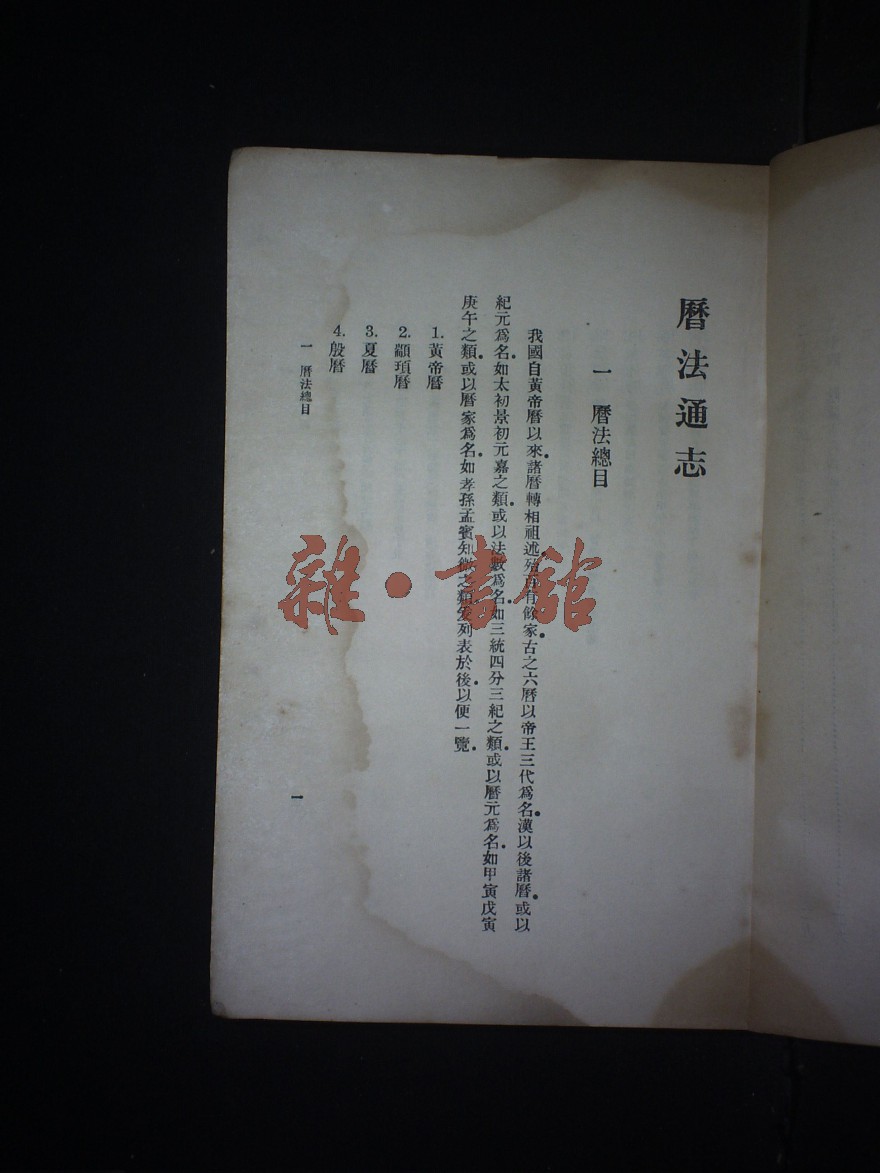 曆法通志
一 曆法總目
我國自黃帝曆以來。諸曆轉相祖述。殆百有餘家。古之六曆以帝王三代爲名。漢以後諸曆。或以
紀元爲名。如太初景初元嘉之類。或以法數爲名。如三統四分三紀之類。或以曆元爲名。如甲寅戊寅
庚午之類。或以曆家爲名。如孝孫孟賓知微之類。爰列表於後。以便一覽。
1. 黃帝曆
2. 顓頊曆
3. 夏曆
4. 殷曆
一 曆法總目
一
雜·書館